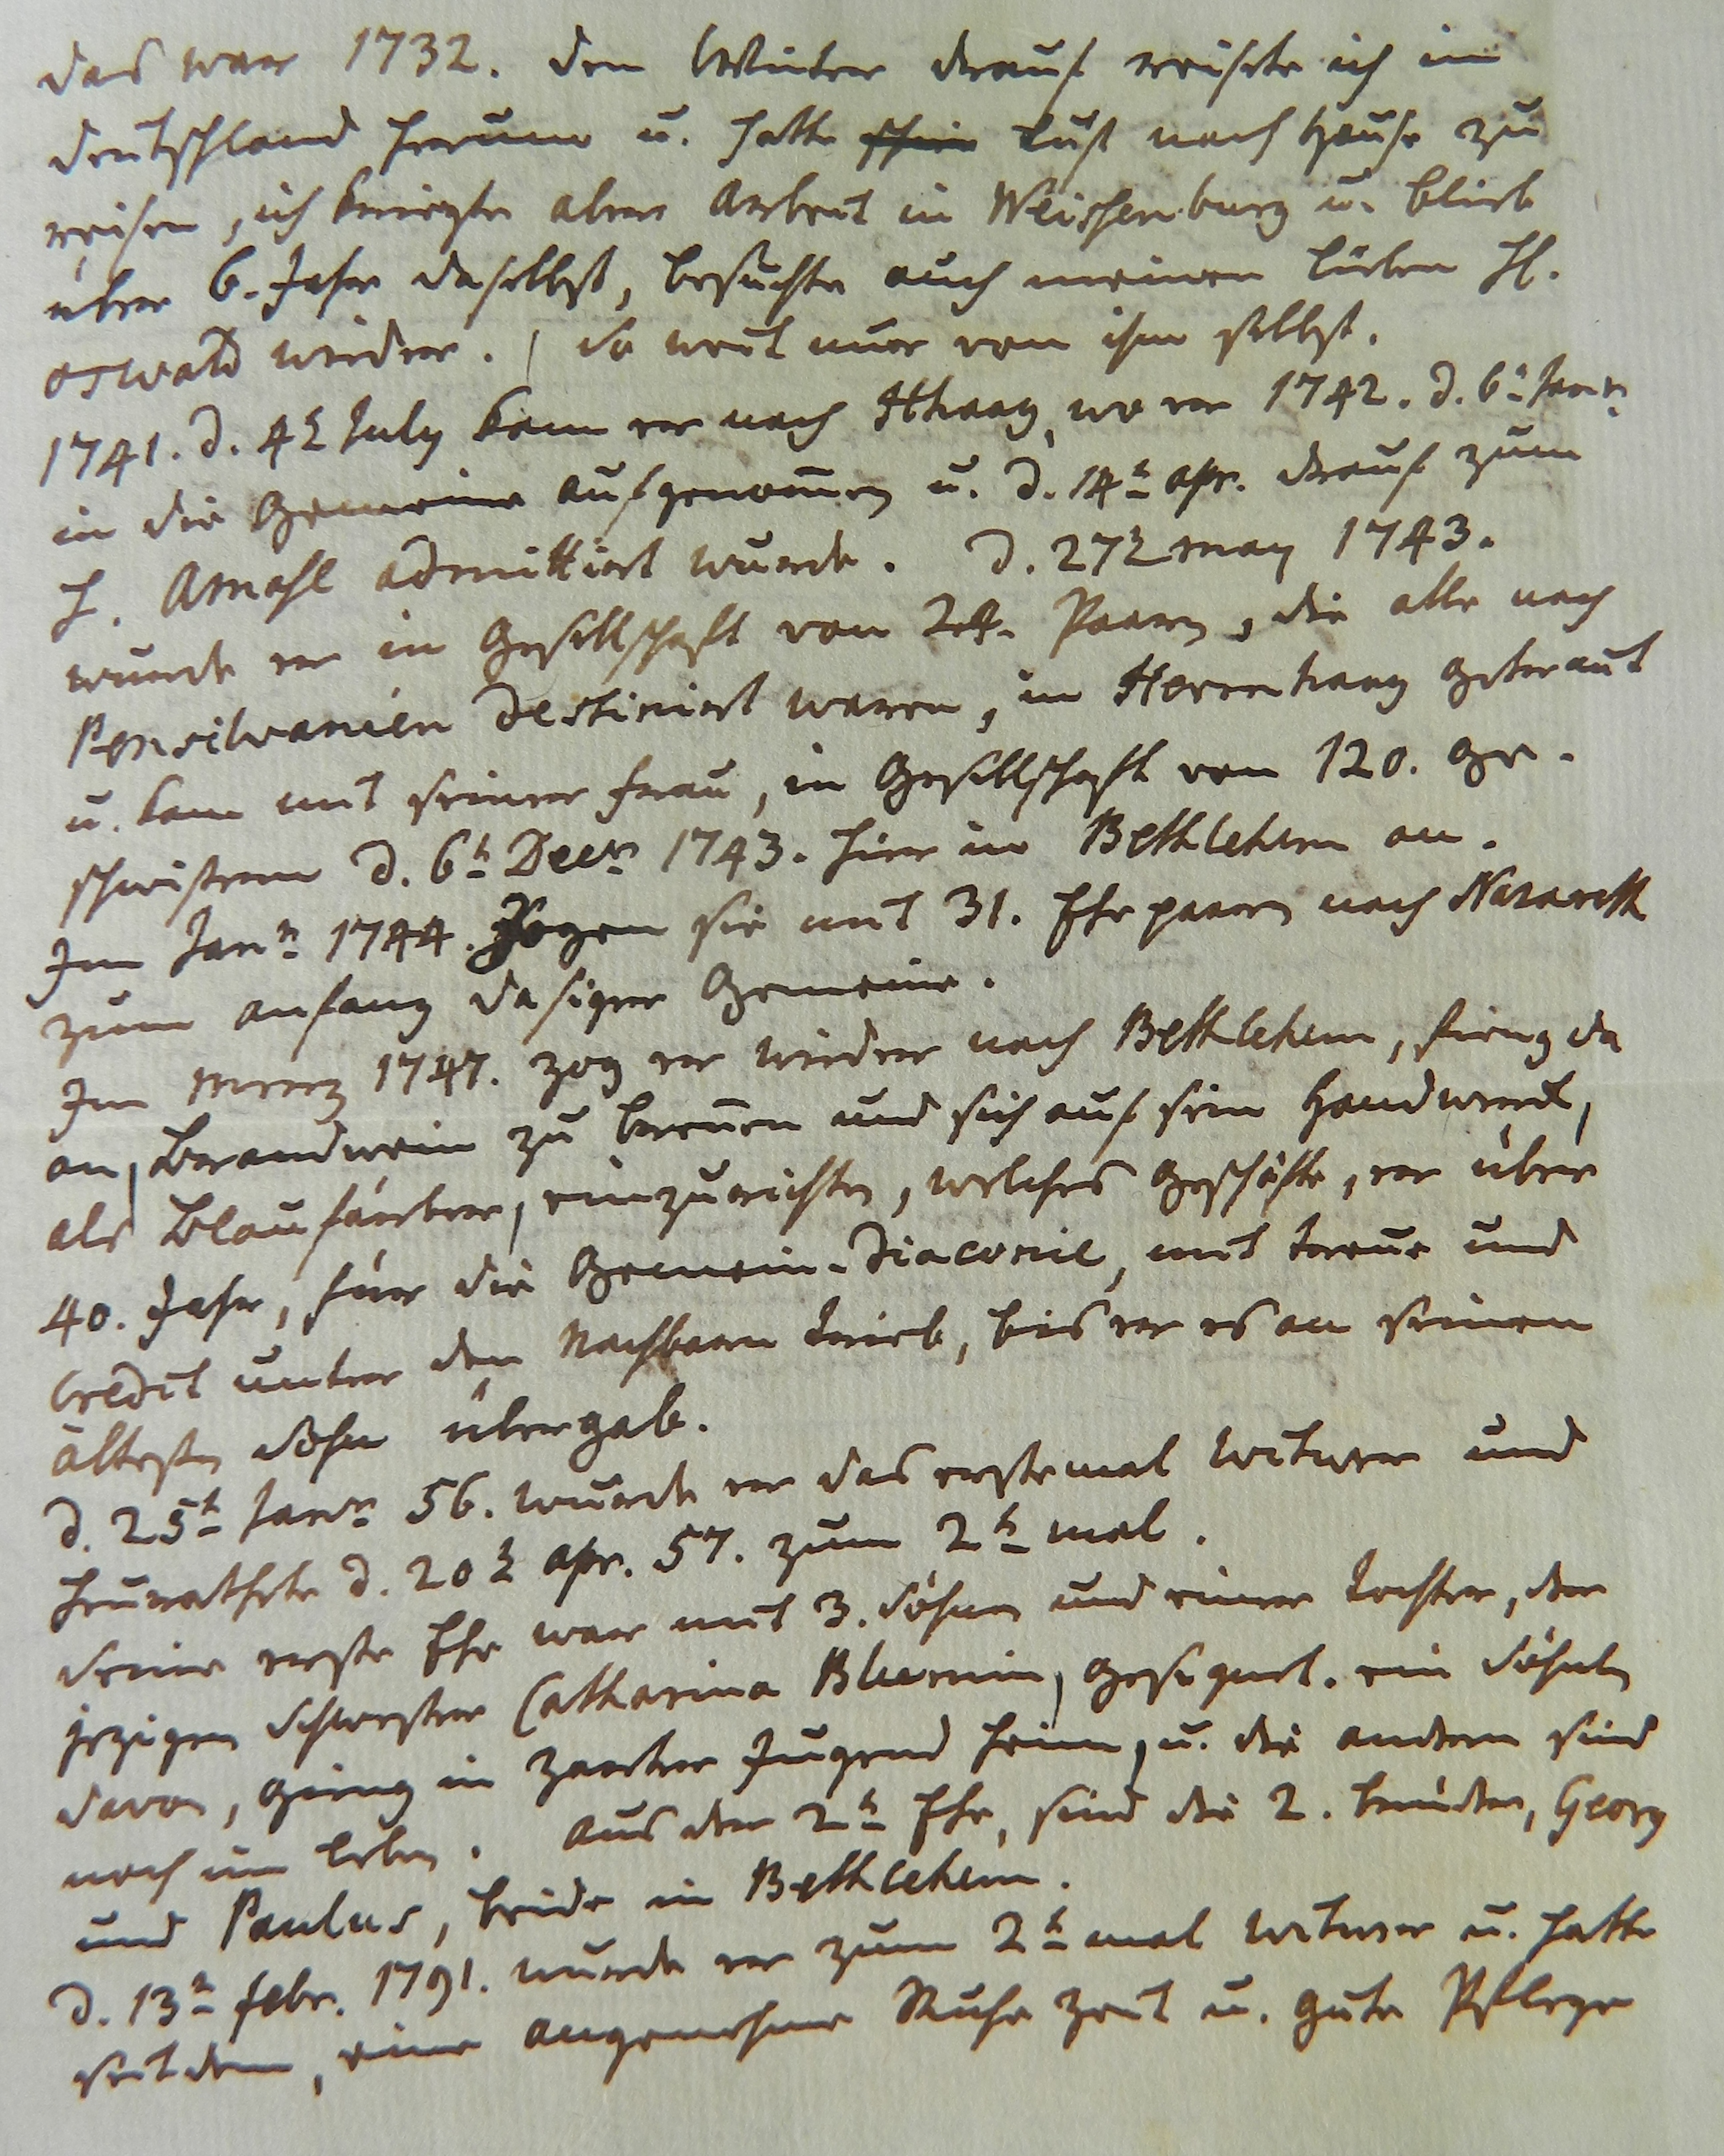 das war 1732. den Winter drauf reiste ich in
deutschland herum u. hatte Lust nach Hause zu
reisen, ich kriegte aber Arbeit in Weissenburg u. blieb
über 6. Jahr daselbst, besuchte auch meinen lieben H.
oswald wieder. / So weit nur von ihm selbst.
1741. d. 4t July kam er nach Hhaag, wo er 1742. d. 6t Janr
in die Gemeine aufgenom̄en u. d. 14t apr. drauf zum
h. Amahl admittirt wurde. d. 27t may 1743.
wurde er in Gesellschaft von 24. Paaren, die alle nach
Pensilvanien destinirt waren, in Herrnhaag getraut
u. kam mit seiner Frau, in Gesellschaft von 120. Ge-
schwistern d. 6t Decr 1743. hier in Bethlehem an.
Im Janr 1744. Zogen sie mit 31. Ehepaaren nach Nazareth
zum anfang dasiger Gemeine.
Im Merz 1747. zog er wieder nach Bethlehem, fieng da
an, Brandwein zu bren̄en und sich auf sein Handwerck,
als Blaufärber, einzurichten, welches Geschäfte, er über
40. Jahr, für die Gemein-Diaconie, mit treue und
Credit unter den Nachbarn trieb, bis er es an seinen
ältesten Sohn übergab.
d. 25t Janr 56. wurde er das erstemal Witwer und
heurathete d. 20t apr. 57. zum 2t mal.
Seine erste Ehe war mit 3. Söhnen und einer Tochter, der
jezigen Schwester Catharina Bluemin, gesegnet. ein Söhnlein
davon, gieng in zarter Jugend heim, u. die andern sind
noch im Leben. Aus der 2t Ehe, sind die 2. Brüder, Georg
und Paulus, beide in Bethlehem.
d. 13t febr. 1791. wurde er zum 2t mal Witwer u. hatte
seitdem, eine angenehme Ruhe Zeit u. gute Pflege